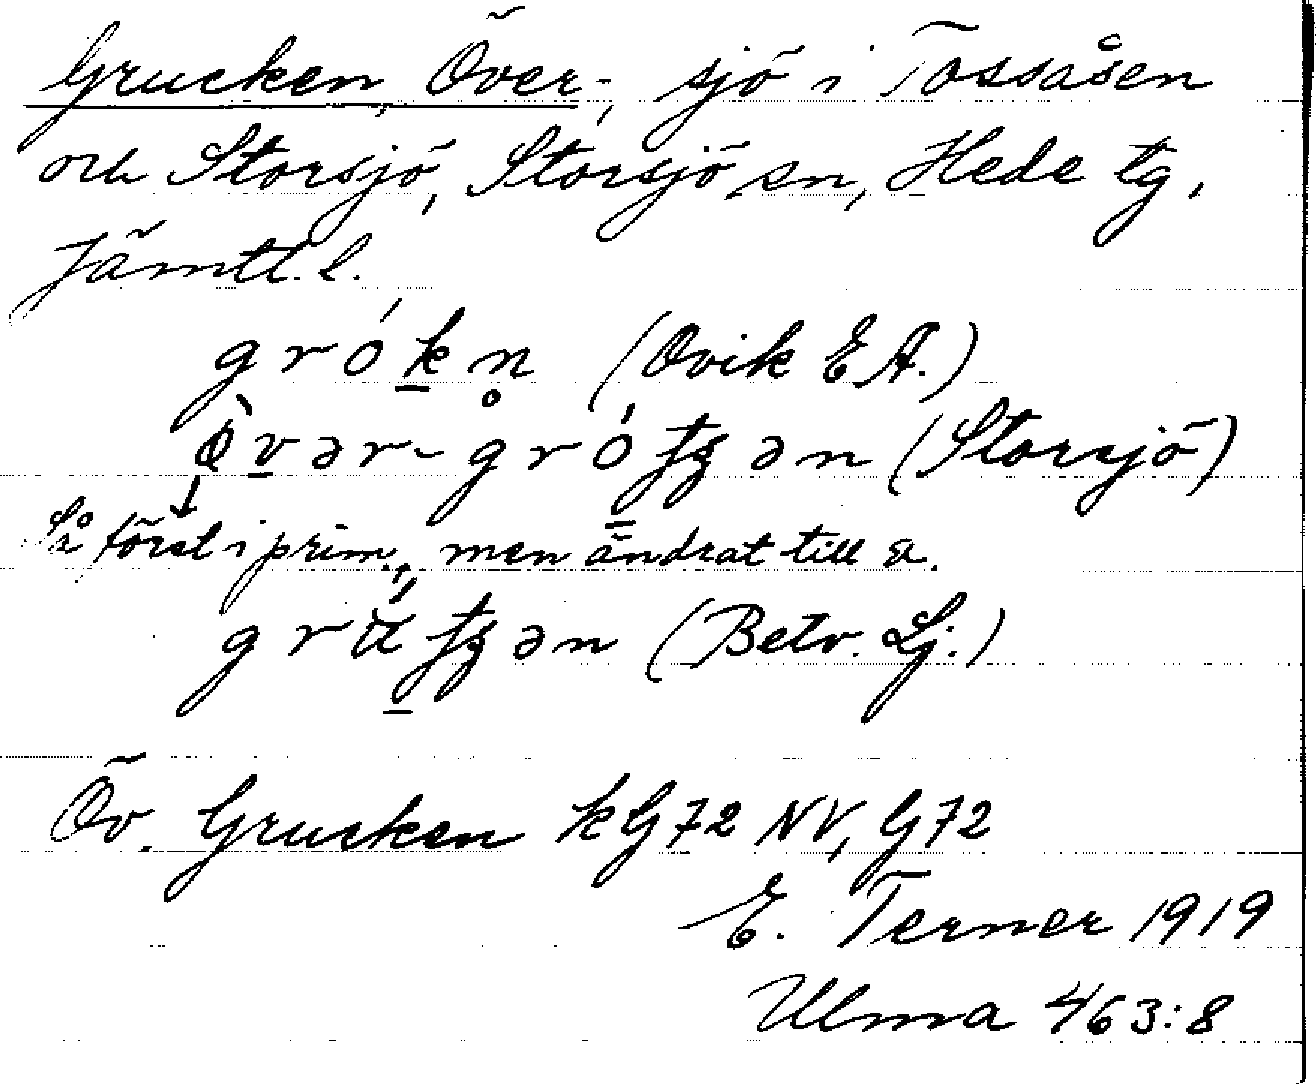 Grucken, Över-, sjö i Tossåsen
och Storsjö, Storsjö sn, Hede tg,
Jämtl. l.
grókn̥ (Ovik E A.)
ǫ̀vər-gróʈʂən (Storsjö)
Så först i prim., men ändrat till a.
grúʈʂən (Betv. Lj.)
Öv. Grucken kG72 NV, G72
E. Terner 1919
Ulma 463:8